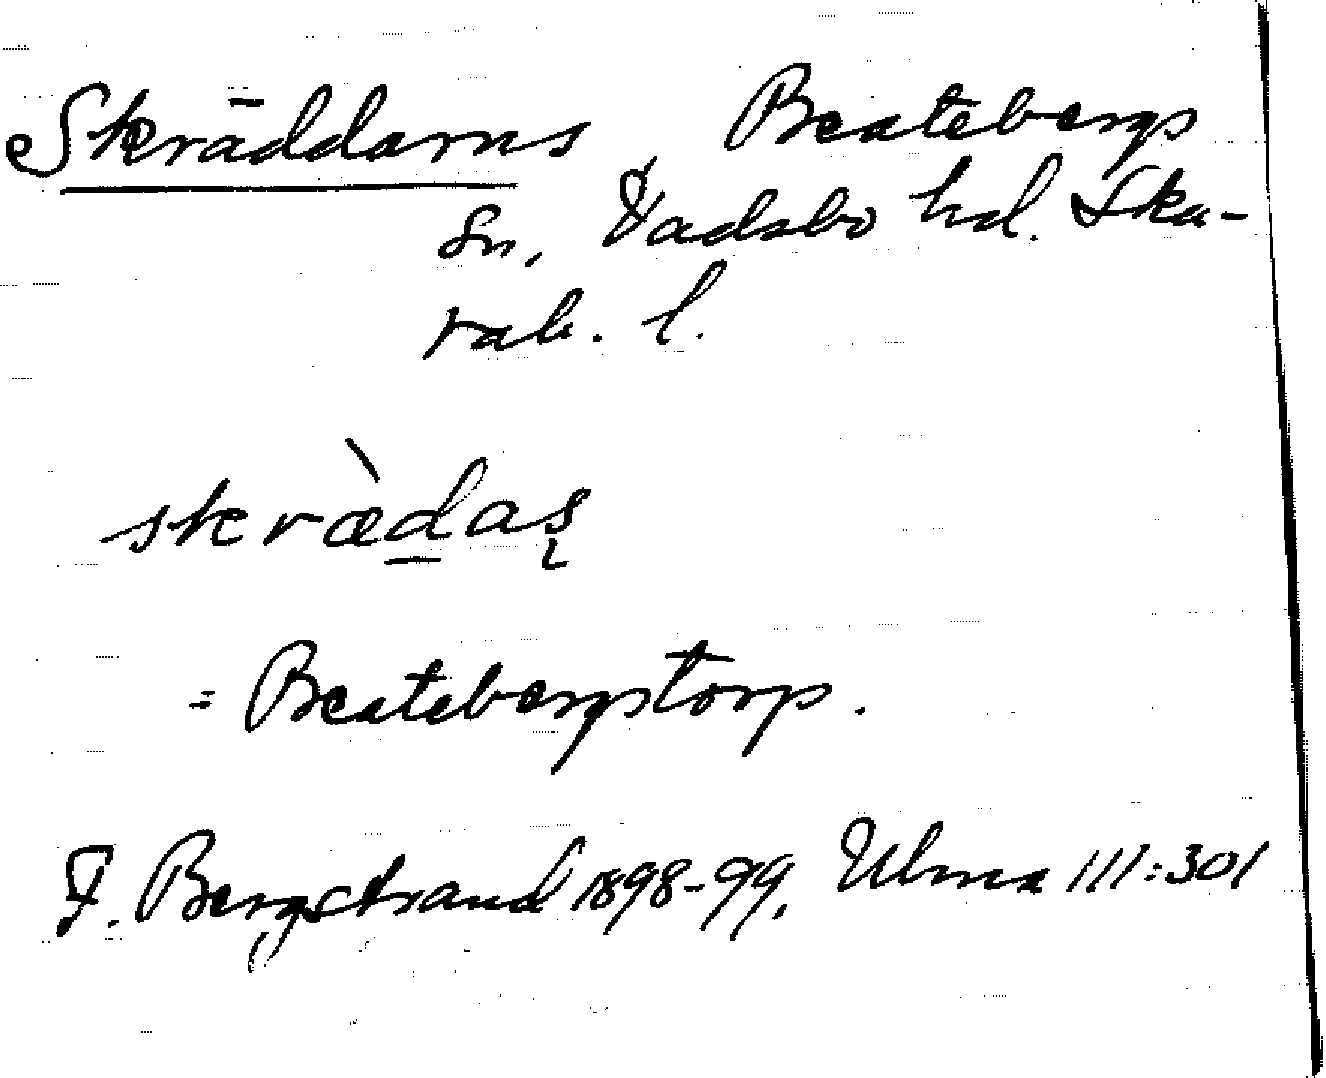 Skräddarns, Beatebergs
sn, Vadsbo hd. Ska-
rab. l.
skræ̀das̨
= Beatebergstorp.
F. Bergstrand 1898-99. Ulma 111:301